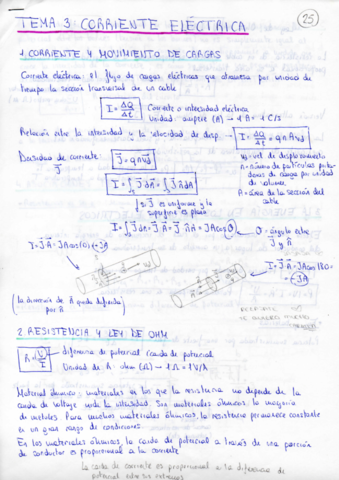 TEMA 3 CORRIENTE ELÉCTRICA
25
1. CORRIENTE Y MOVIMIENTO DE CARGAS
Corriente eléctrica: el flujo de cargas eléctricas que atraviesa por unidad de
tiempo la sección transversal de un cable
I = ΔQ/Δt
Corriente o intensidad eléctrica
Unidad: ampère (A) → 1 A = 1 C/s
Relación entre la intensidad y la velocidad de desp. → I = ΔQ/Δt = q n A vd
Densidad de corriente: J = q n vd
J
vd = vel. de desplazamiento
n = número de partículas porta-
doras de carga por unidad
de volumen
A = área de la sección del
cable
I = ∫s J dA = ∫s J n dA
si J es uniforme y la
superficie es plana
I = ∫s J dA = J A = J n A = JA cos θ
θ = ángulo entre
J y A
I = J A = JA cos(0) = JA
I = J A = JA cos 180 =
= -JA
(La dirección de A queda definida
por n)
2. RESISTENCIA Y LEY DE OHM
R = V/I
diferencia de potencial / caída de potencial
Unidad de R: ohm (Ω) → 1 Ω = 1 V/A
Material óhmico: materiales en los que la resistencia no depende de la
caída de voltaje ni de la intensidad. Son materiales óhmicos, la mayoría
de metales. Para muchos materiales óhmicos, la resistencia permanece constante
en un gran rango de condiciones.
En los materiales óhmicos, la caída de potencial a través de una porción
de conductor es proporcional a la corriente
La caída de corriente es proporcional a la diferencia de
potencial entre sus extremos